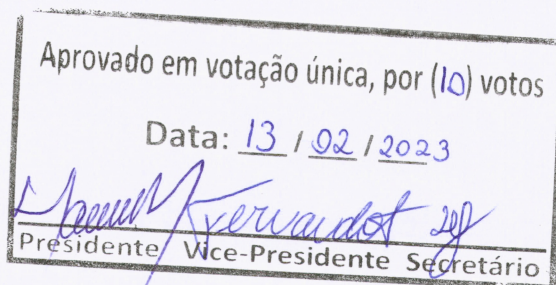 Aprovado em votação única, por (10) votos
Data: 13 / 02 / 2023
Presidente Vice-Presidente Secretário